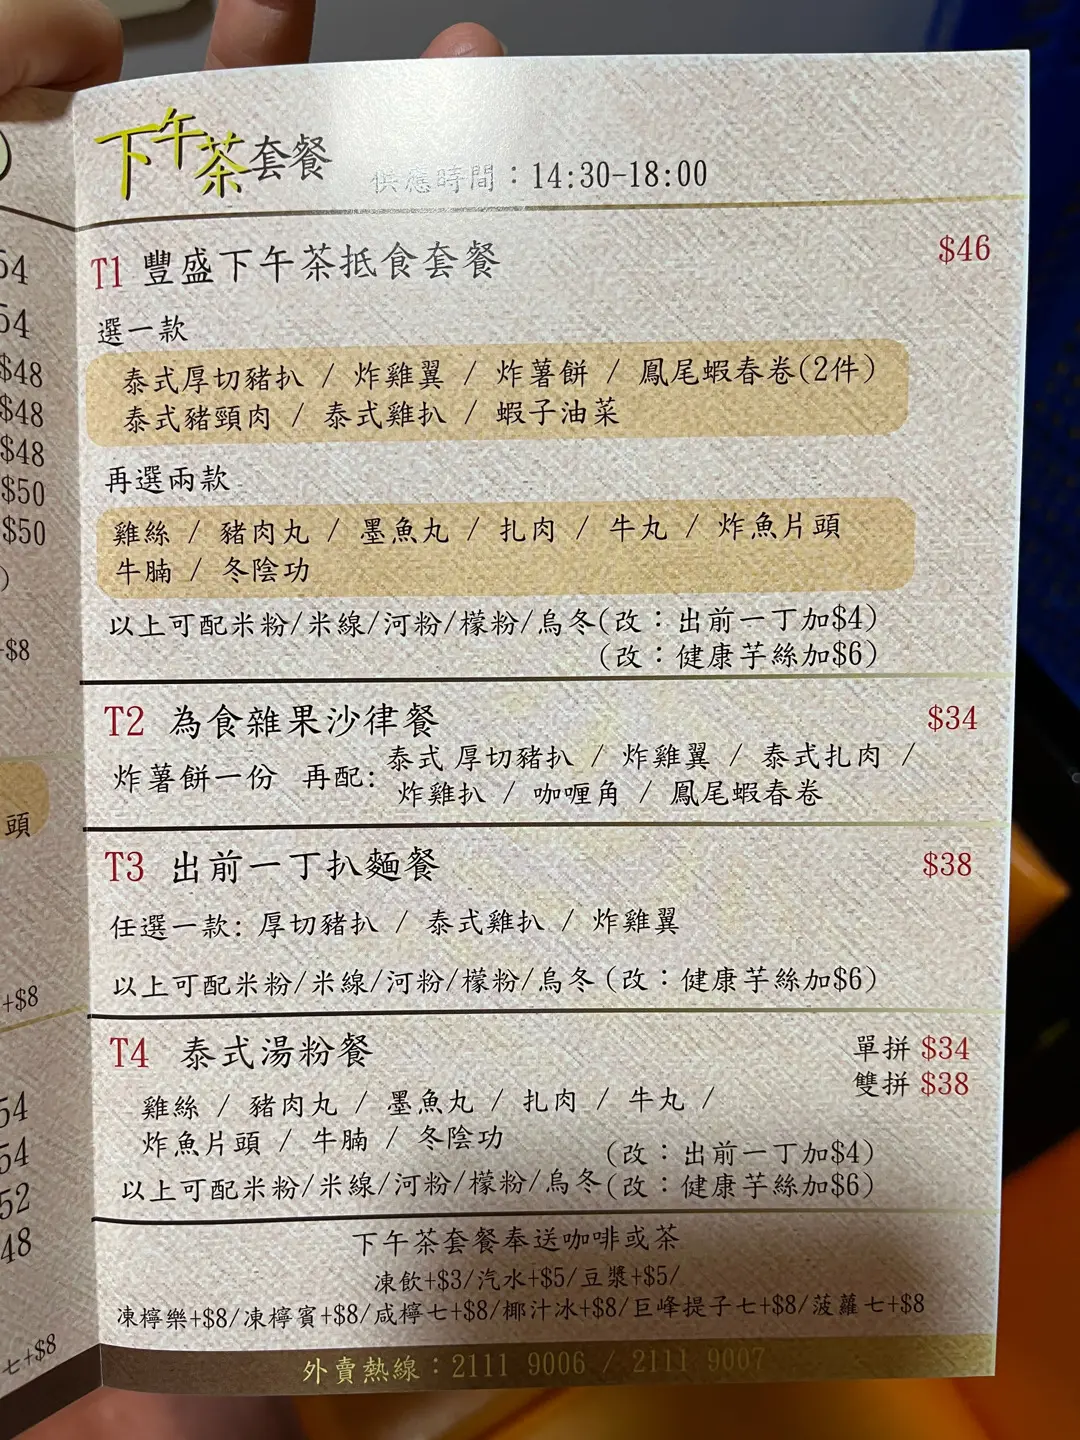 下午茶套餐 供應時間：14:30-18:00
T1 豐盛下午茶抵食套餐 $46
選一款
泰式厚切豬扒 / 炸雞翼 / 炸薯餅 / 鳳尾蝦春卷(2件)
泰式豬頸肉 / 泰式雞扒 / 蝦子油菜
再選兩款
雞絲 / 豬肉丸 / 墨魚丸 / 扎肉 / 牛丸 / 炸魚片頭
牛腩 / 冬陰功
以上可配米粉/米線/河粉/檬粉/烏冬(改：出前一丁加$4)
(改：健康芋絲加$6)
T2 為食雜果沙律餐 $34
炸薯餅一份 再配: 泰式 厚切豬扒 / 炸雞翼 / 泰式扎肉 /
炸雞扒 / 咖喱角 / 鳳尾蝦春卷
T3 出前一丁扒麵餐 $38
任選一款: 厚切豬扒 / 泰式雞扒 / 炸雞翼
以上可配米粉/米線/河粉/檬粉/烏冬(改：健康芋絲加$6)
T4 泰式湯粉餐 單拼 $34
雙拼 $38
雞絲 / 豬肉丸 / 墨魚丸 / 扎肉 / 牛丸 /
炸魚片頭 / 牛腩 / 冬陰功 (改：出前一丁加$4)
以上可配米粉/米線/河粉/檬粉/烏冬(改：健康芋絲加$6)
下午茶套餐奉送咖啡或茶
凍飲+$3/汽水+$5/豆漿+$5/
凍檸樂+$8/凍檸賓+$8/咸檸七+$8/椰汁冰+$8/巨峰提子七+$8/菠蘿七+$8
外賣熱線：2111 9006 / 2111 9007
54
54
$48
$48
$48
$50
$50
)
+$8
頭
+$8
54
54
52
48
七+$8